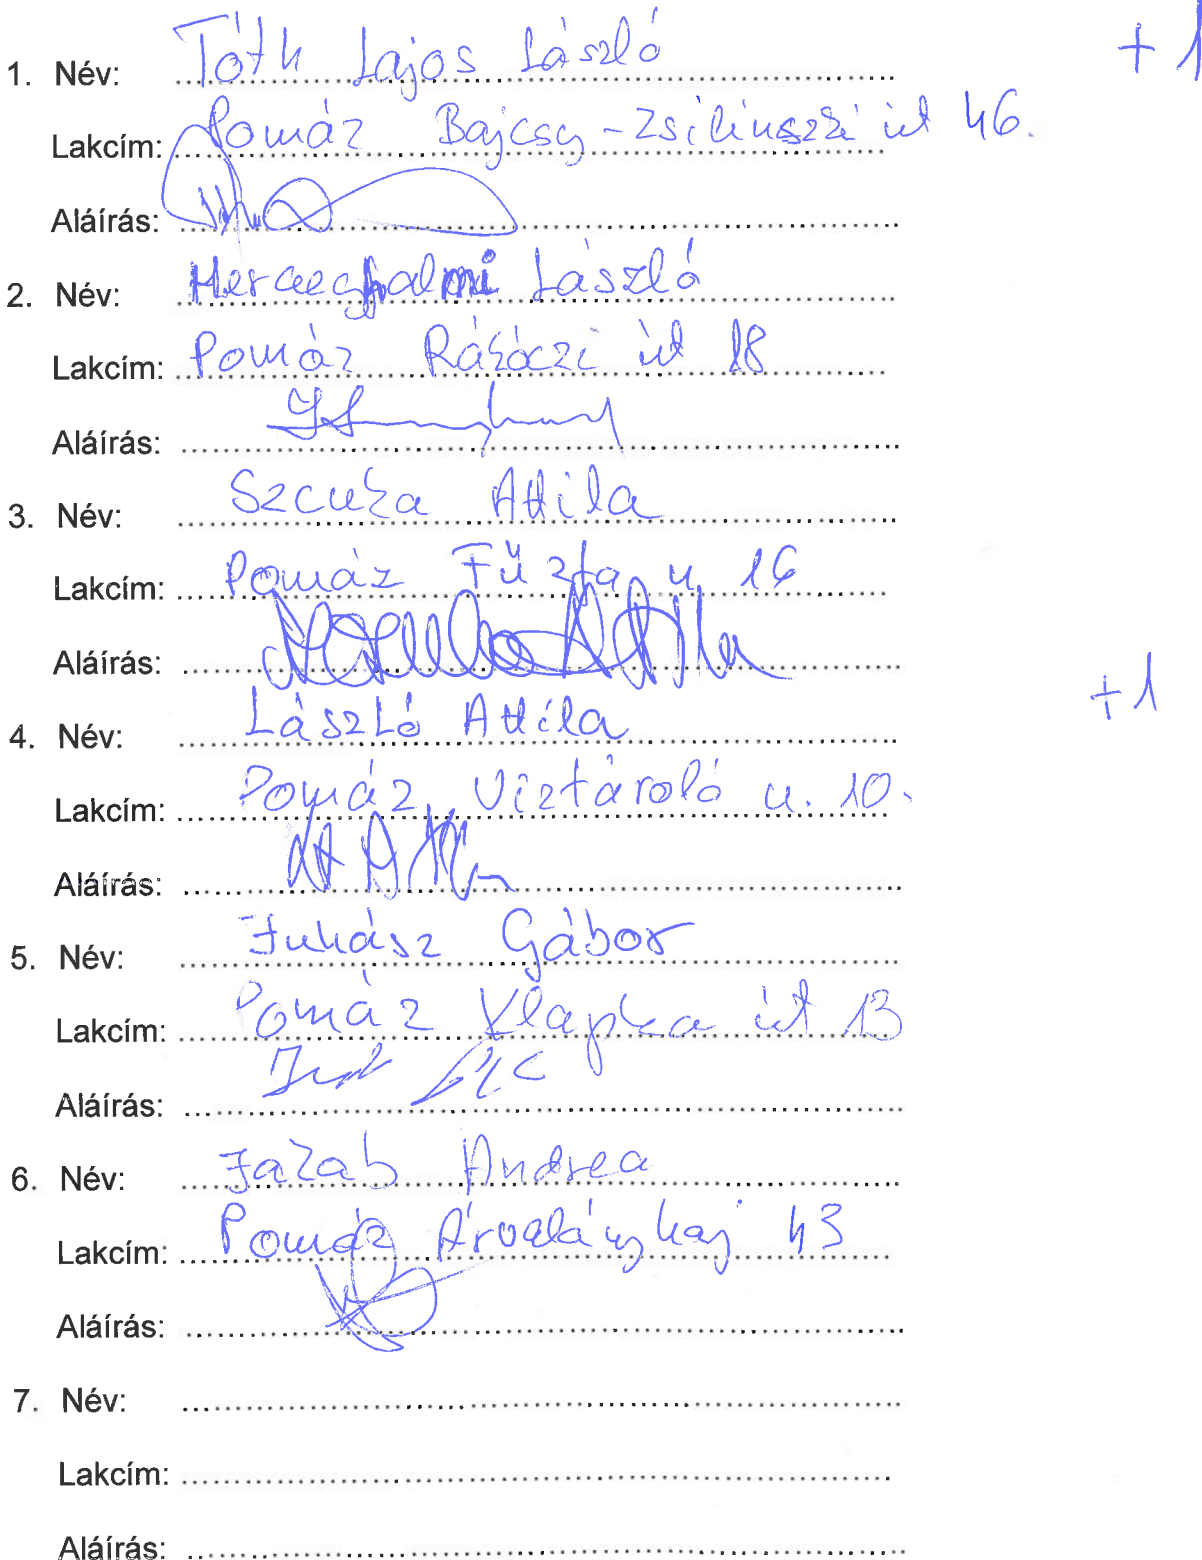 1. Név: Tóth Lajos László +1
Lakcím: Pomáz Bajcsy-Zsilinszki út 46.
Aláírás:
2. Név: Herczeghalmi László
Lakcím: Pomáz Rákóczi út 18
Aláírás:
3. Név: Szcuka Attila
Lakcím: Pomáz Fűzfa u 16
Aláírás:
+1
4. Név: László Attila
Lakcím: Pomáz Víztároló u. 10.
Aláírás:
5. Név: Juhász Gábor
Lakcím: Pomáz Klapka út 13
Aláírás:
6. Név: Jakab Andrea
Lakcím: Pomáz Árvalányhaj 43
Aláírás:
7. Név:
Lakcím:
Aláírás: